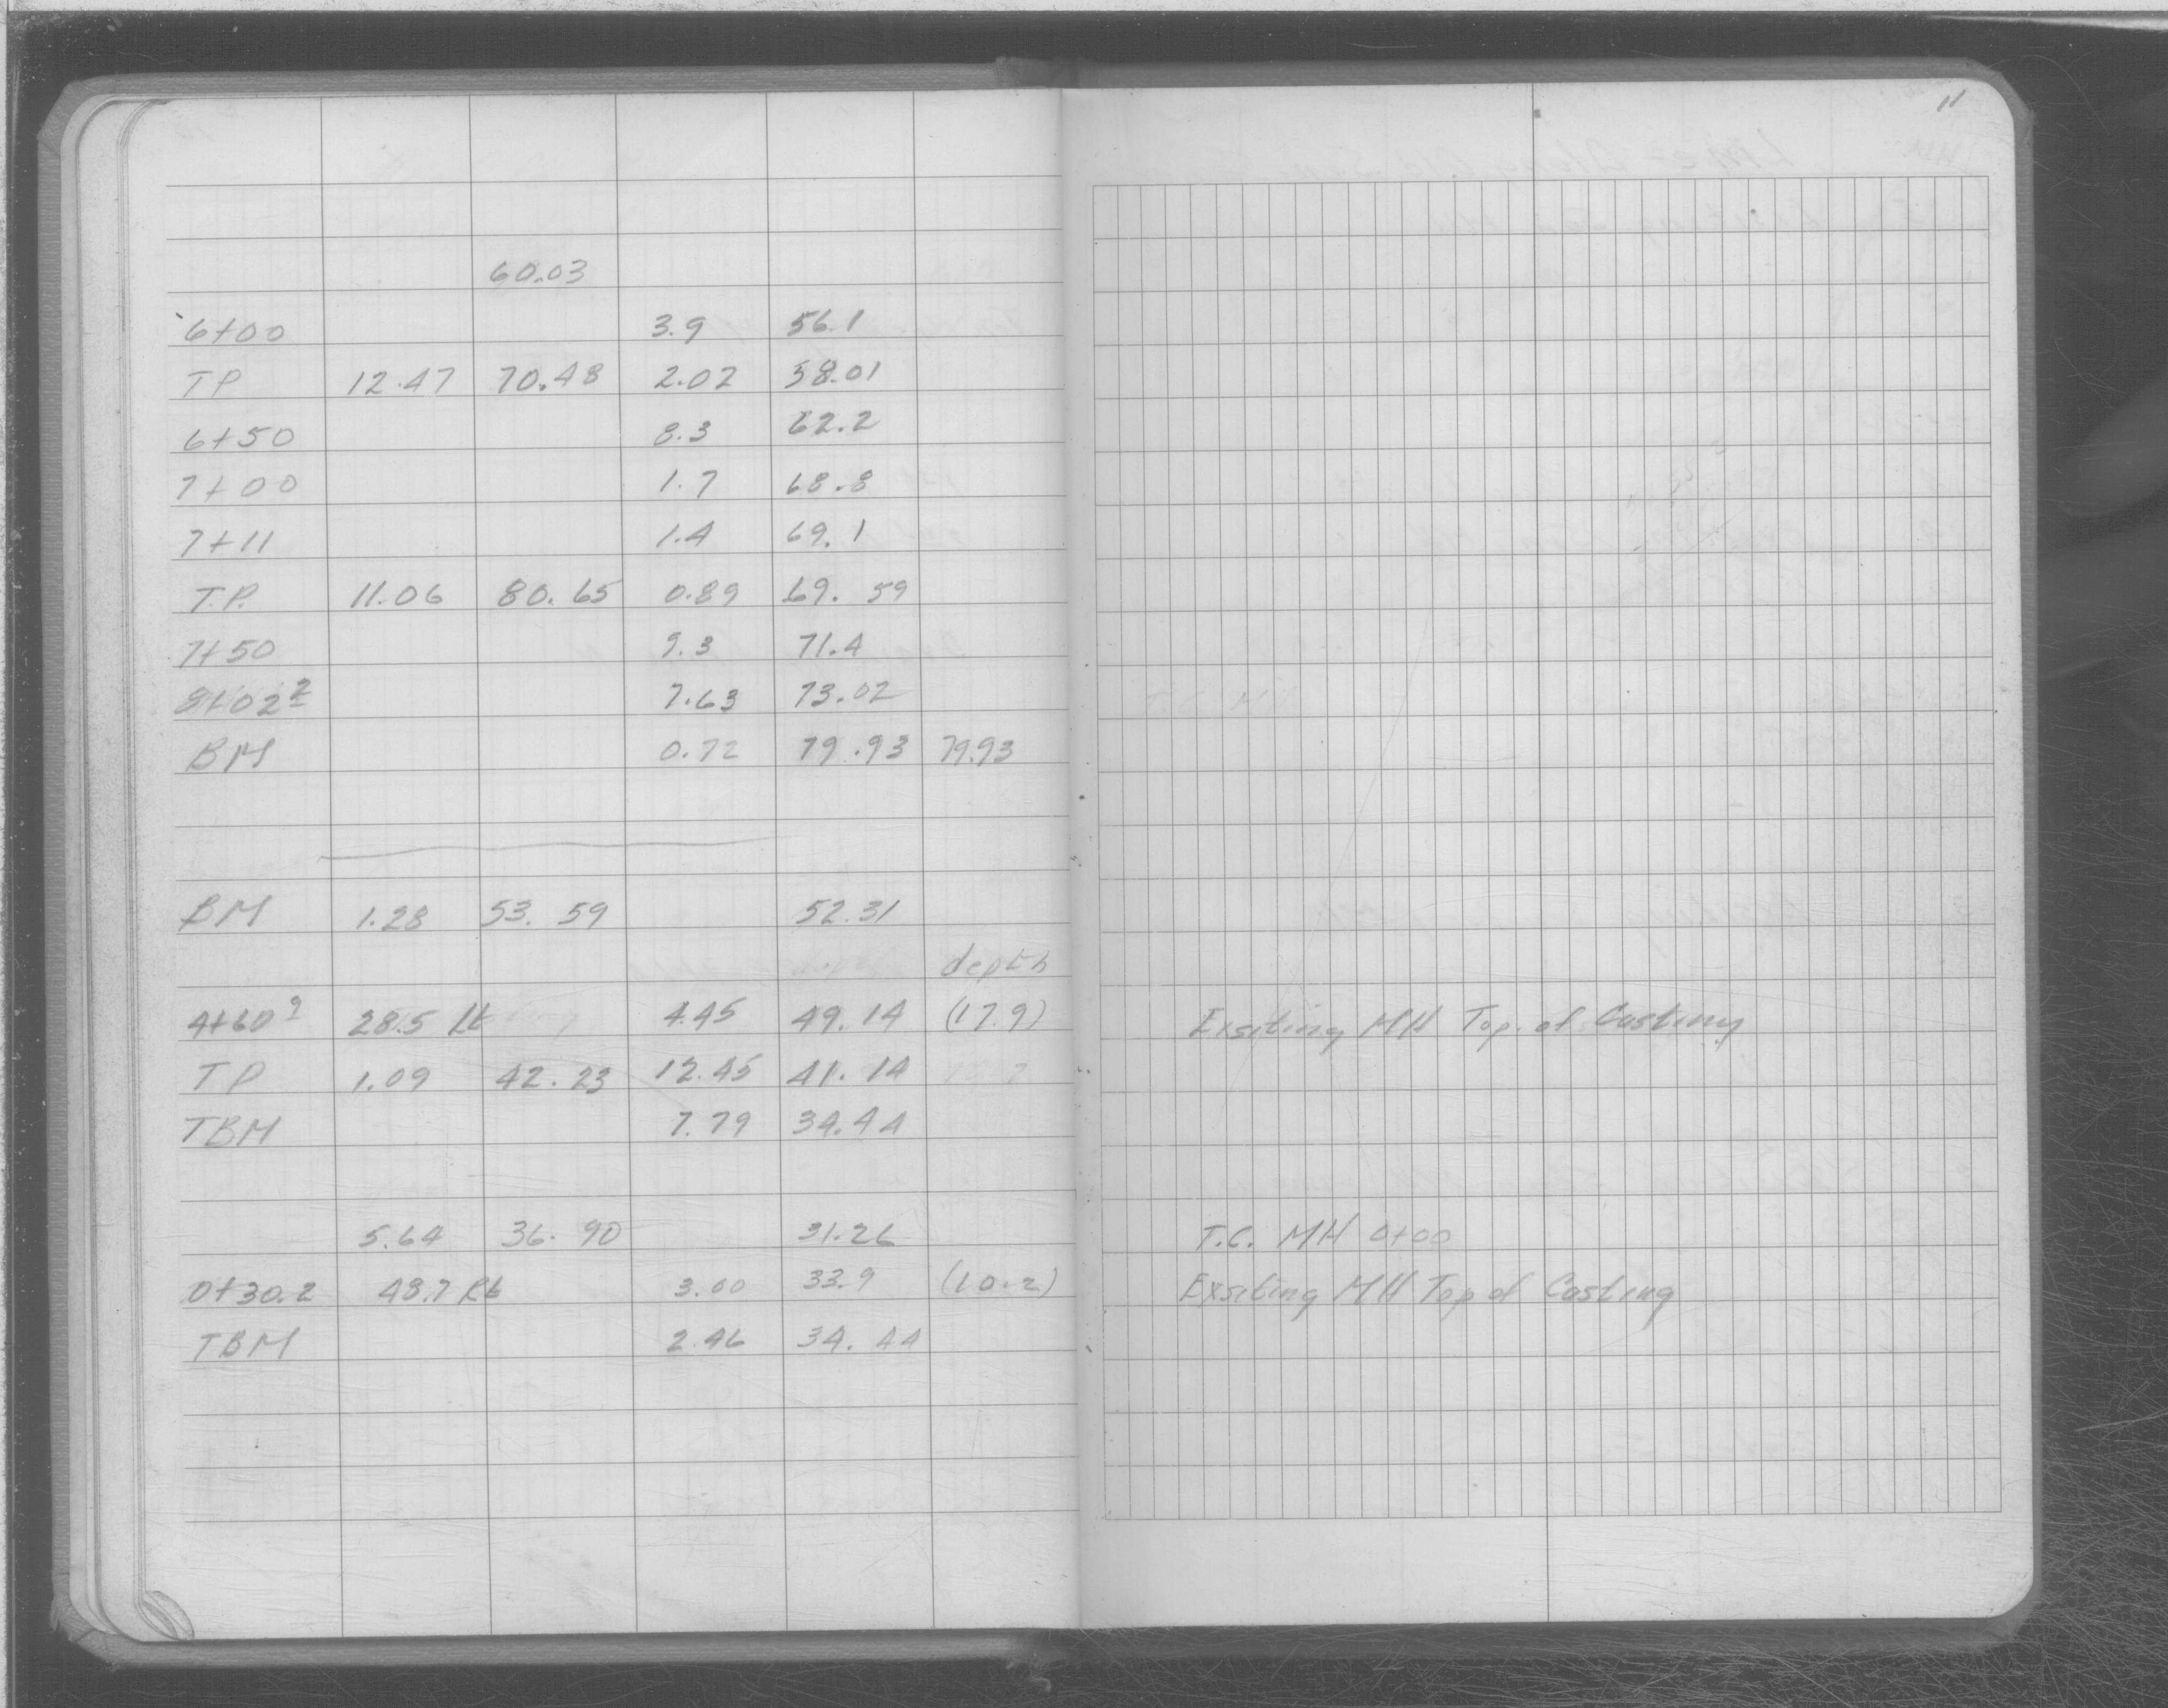 11
60.03
6+00 3.9 56.1
TP 12.47 70.48 2.02 58.01
6+50 8.3 62.2
7+00 1.7 68.8
7+11 1.4 69.1
T.P. 11.06 80.65 0.89 69.59
7+50 9.3 71.4
8+02² 7.63 73.02
BM 0.72 79.93 79.93
BM 1.28 53.59 52.31
depth
4+60⁹ 28.5 Lt 4.45 49.14 (17.9) Exsiting MH Top of Casting
TP 1.09 42.23 12.45 41.14
TBM 7.79 34.44
5.64 36.90 31.26 T.C. MH 0+00
0+30.2 48.7 Rt 3.00 33.9 (10.2) Exsiting MH Top of Casting
TBM 2.46 34.44